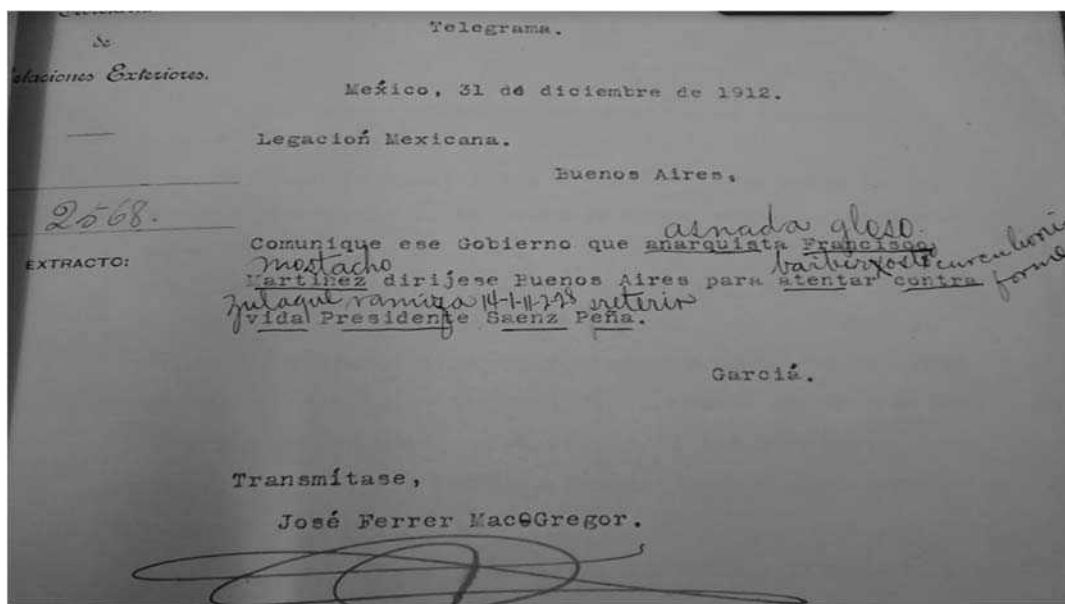 de
Relaciones Exteriores.
Telegrama.
México, 31 de diciembre de 1912.
Legación Mexicana.
Buenos Aires,
2568.
EXTRACTO:
asnada gloso.
Comunique ese Gobierno que anarquista Francisco
mostacho
Martínez dirijese Buenos Aires para atentar contra
zulaque ramiza 14-1-11-2-28
vida Presidente Saenz Peña.
Garciá.
Transmítase,
José Ferrer MacGregor.